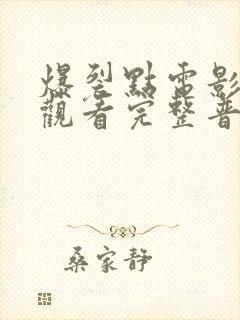 爆裂點電影
觀看完整普
桑家靜